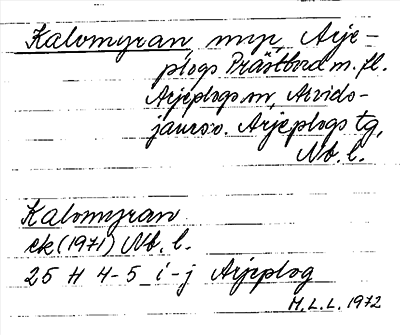 Kalomyran, myr, Arje-
plogs Prästbord m. fl.
Arjeplogs sn, Arvids-
jaurs o. Arjeplogs tg,
Nb. l.
Kalomyran
ek (1971) Nb. l.
25 H 4-5 i-j Arjeplog
H.L.L. 1972